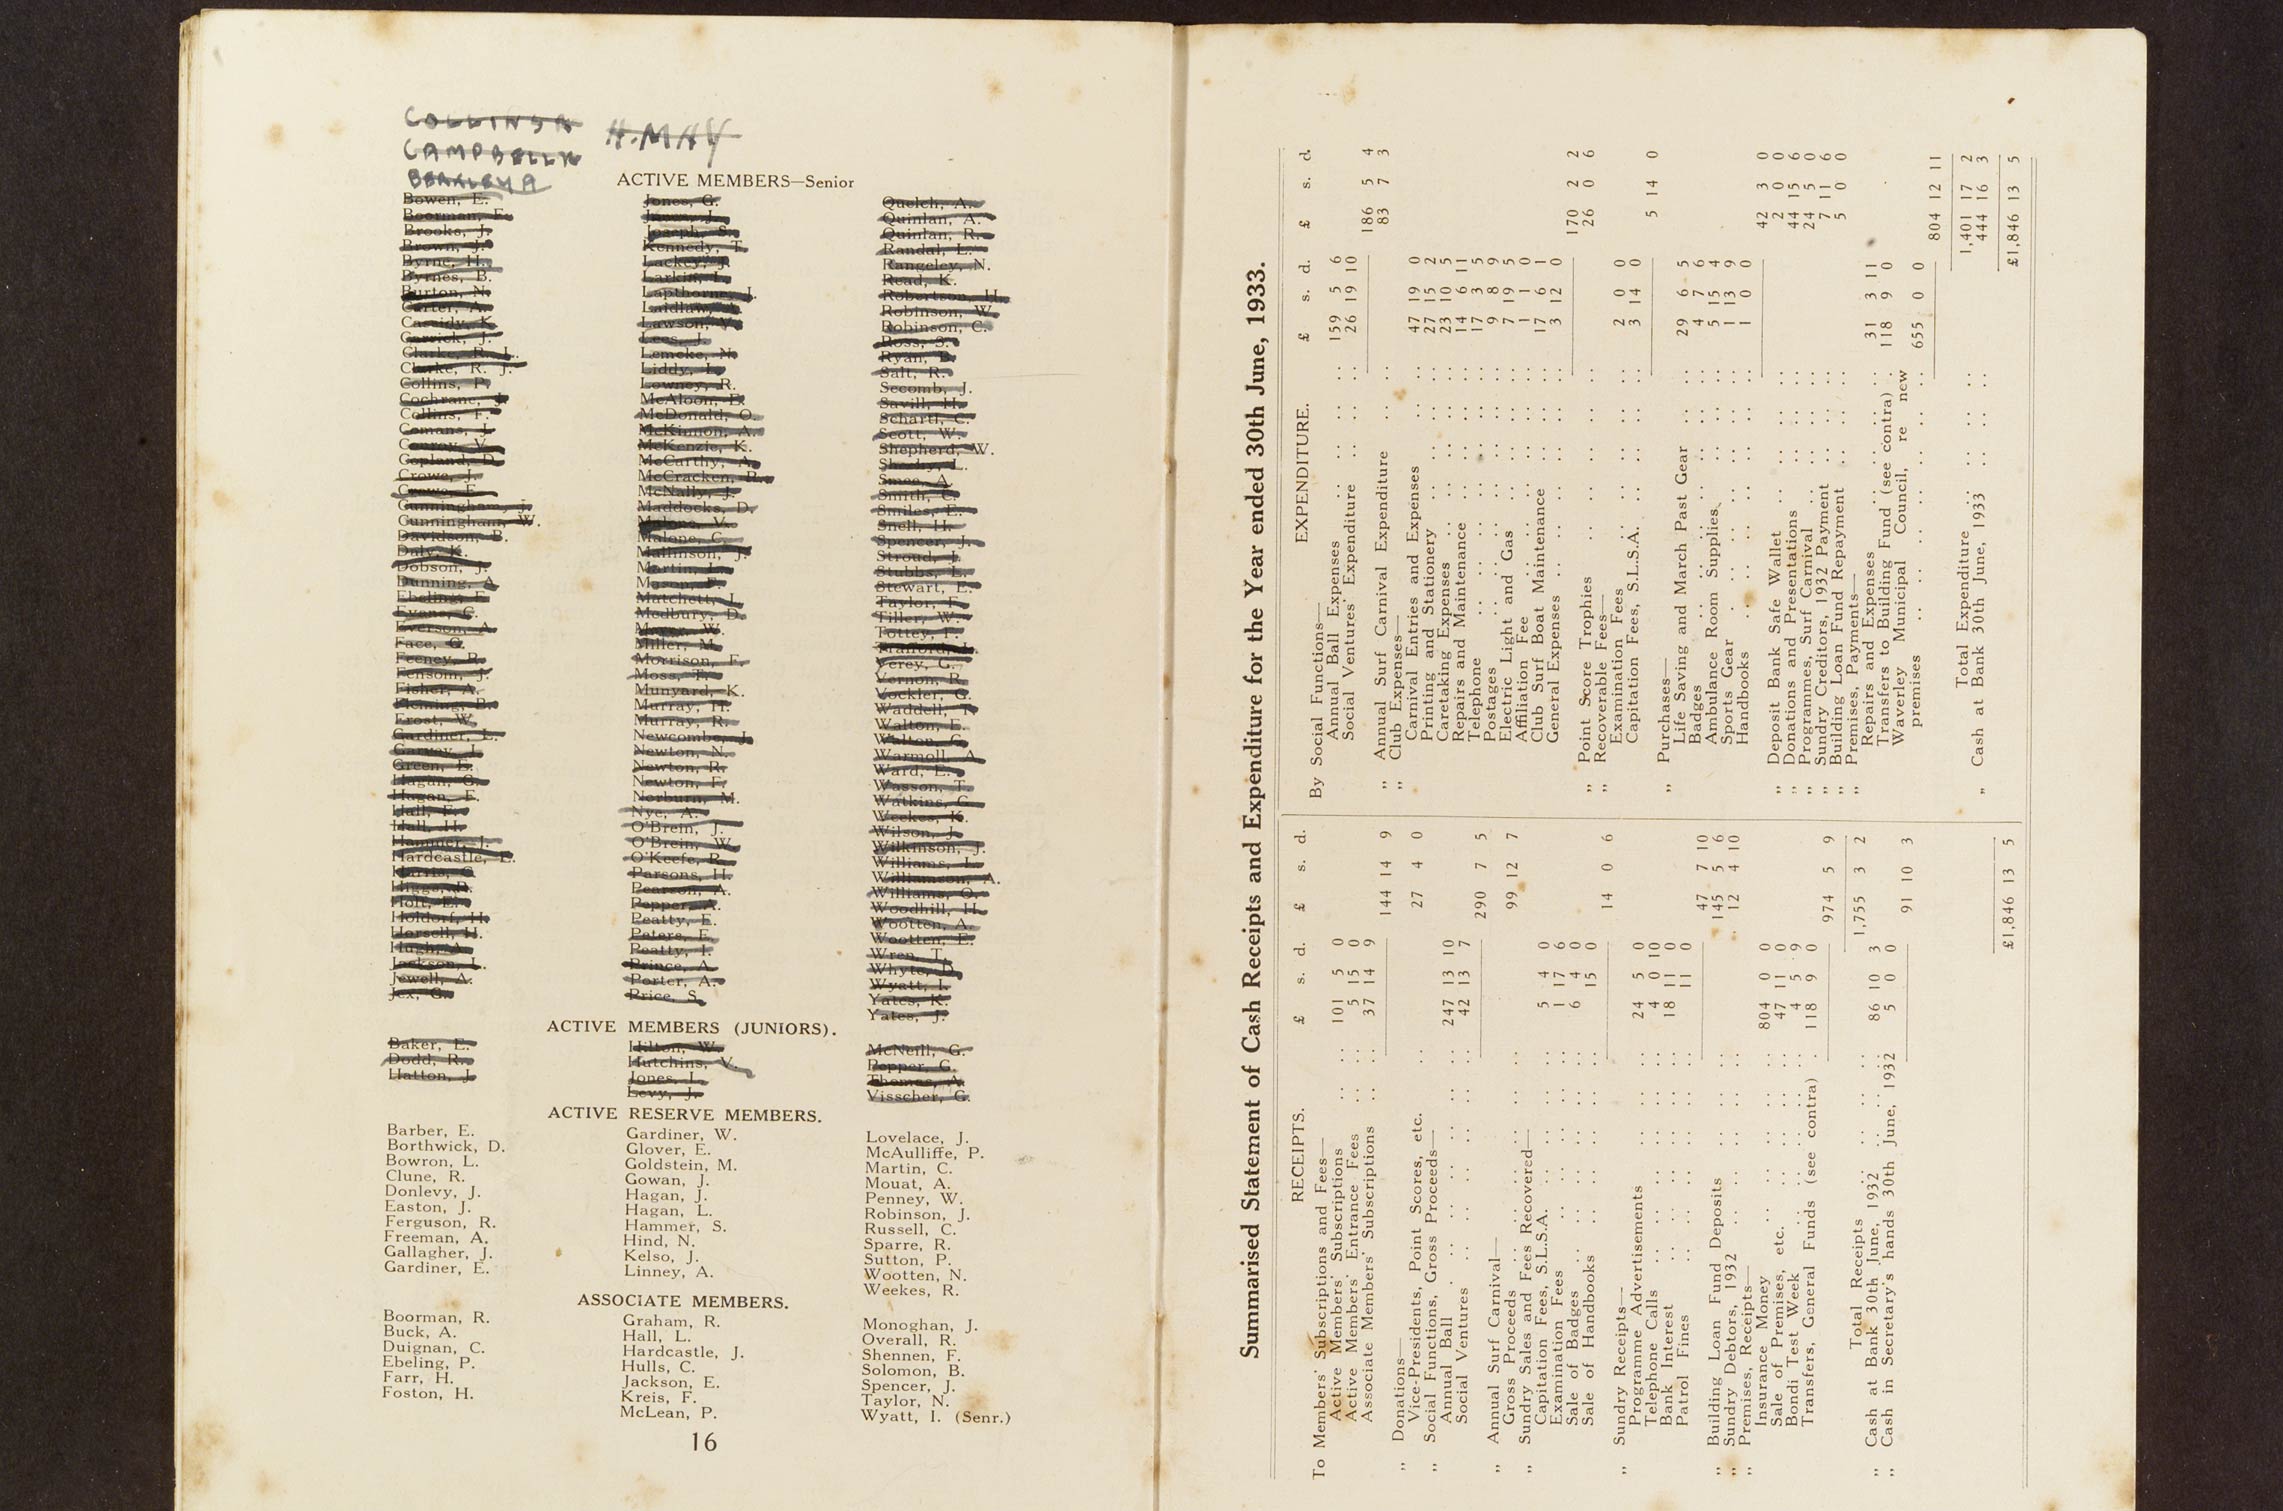 COLLINS R
CAMPBELL K
H. MAY
ACTIVE MEMBERS—Senior
Bowen, E.
Boorman, F.
Brooks, J.
Brown, J.
Byrne, H.
Byrnes, B.
Burton, N.
Carter, A.
Cassidy, K.
Carrick, J.
Clarke, R. L.
Clarke, R. J.
Collins, P.
Cochrane, J.
Collins, F.
Comans, J.
Conroy, V.
Copland, D.
Crowe, J.
Crowe, F.
Cunningham, J.
Cunningham, W.
Davidson, B.
Daly, K.
Dobson, J.
Dunning, A.
Ebeling, F.
Evans, C.
Everson, A.
Face, C.
Feeney, R.
Fensom, J.
Fisher, A.
Fleming, B.
Frost, W.
Gardiner, L.
Garvey, J.
Green, E.
Hagan, C.
Hagan, F.
Hall, F.
Hall, H.
Hammer, J.
Hardcastle, E.
Harris, C.
Higgs, R.
Holt, E.
Holdorf, H.
Horsell, H.
Hugh, A.
Jackson, L.
Jewell, A.
Jex, G.
Jones, G.
Joseph, S.
Kennedy, T.
Lackey, J.
Larkin, J.
Lapthorne, J.
Laidlaw,
Lawson, V.
Lees, J.
Lemcke, N.
Liddy, L.
Lowney, R.
McAloon, E.
McDonald, O.
McKinnon, A.
McKenzie, K.
McCarthy, A.
McCracken, R.
McNally, J.
Maddocks, D.
Malone, V.
Malone, C.
Mallinson, J.
Martin, L.
Mason, F.
Matchett, J.
Medbury, D.
Meyer, W.
Miller, M.
Morrison, F.
Moss, T.
Munyard, K.
Murray, H.
Murray, R.
Newcombe, J.
Newton, N.
Newton, R.
Newton, F.
Norburn, M.
Nye, A.
O'Brein, J.
O'Brein, W.
O'Keefe, R.
Parsons, H.
Pearson, A.
Pepper, A.
Peatty, E.
Peters, E.
Peatty, I.
Prince, A.
Porter, A.
Price, S.
Quelch, A.
Quinlan, A.
Quinlan, R.
Randal, L.
Rangeley, N.
Read, K.
Robertson, H.
Robinson, W.
Robinson, C.
Ross, S.
Ryan, B.
Salt, R.
Secomb, J.
Savill, H.
Schartl, C.
Scott, W.
Shepherd, W.
Sheehy, L.
Smee, A.
Smith, C.
Smiles, E.
Snell, H.
Spencer, J.
Stroud, J.
Stubbs, E.
Stewart, E.
Taylor, F.
Tiller, W.
Tottey, F.
Trafford, L.
Verey, G.
Vernon, R.
Vockler, G.
Waddell, N.
Walton, E.
Walton, C.
Warmoll, A.
Ward, E.
Wasson, T.
Watkins, G.
Weekes, K.
Wilson, J.
Wilkinson, J.
Williams, L.
Williamson, A.
Williams, O.
Woodhill, H.
Wootten, A.
Wootten, E.
Wren, T.
Whyte, D.
Wyatt, I.
Yates, K.
Yates, J.
ACTIVE MEMBERS (JUNIORS).
Baker, E.
Dodd, R.
Hatton, J.
Hilton, W.
Hutchins, V.
Jones, L.
Levy, J.
McNeill, G.
Pepper, G.
Thomas, A.
Visscher, G.
ACTIVE RESERVE MEMBERS.
Barber, E.
Borthwick, D.
Bowron, L.
Clune, R.
Donlevy, J.
Easton, J.
Ferguson, R.
Freeman, A.
Gallagher, J.
Gardiner, E.
Gardiner, W.
Glover, E.
Goldstein, M.
Gowan, J.
Hagan, J.
Hagan, L.
Hammer, S.
Hind, N.
Kelso, J.
Linney, A.
Lovelace, J.
McAulliffe, P.
Martin, C.
Mouat, A.
Penney, W.
Robinson, J.
Russell, C.
Sparre, R.
Sutton, P.
Wootten, N.
Weekes, R.
ASSOCIATE MEMBERS.
Boorman, R.
Buck, A.
Duignan, C.
Ebeling, P.
Farr, H.
Foston, H.
Graham, R.
Hall, L.
Hardcastle, J.
Hulls, C.
Jackson, E.
Kreis, F.
McLean, P.
Monoghan, J.
Overall, R.
Shennen, F.
Solomon, B.
Spencer, J.
Taylor, N.
Wyatt, I. (Senr.)
16
Summarised Statement of Cash Receipts and Expenditure for the Year ended 30th June, 1933.
RECEIPTS. £ s. d. £ s. d.
To Members' Subscriptions and Fees—
Active Members' Subscriptions .. 101 5 0
Active Members' Entrance Fees .. 5 15 0
Associate Members' Subscriptions .. 37 14 9
144 14 9
„ Donations—
Vice-Presidents, Point Scores, etc. .. 27 4 0
„ Social Functions, Gross Proceeds—
Annual Ball .. 247 13 10
Social Ventures .. 42 13 7
290 7 5
„ Annual Surf Carnival—
Gross Proceeds .. 99 12 7
„ Sundry Sales and Fees Recovered—
Capitation Fees, S.L.S.A. .. 5 4 0
Examination Fees .. 1 17 6
Sale of Badges .. 6 4 0
Sale of Handbooks .. 15 0
14 0 6
„ Sundry Receipts—
Programme Advertisements .. 24 5 0
Telephone Calls .. 4 0 10
Bank Interest .. 18 11 0
Patrol Fines .. 11 0
47 7 10
„ Building Loan Fund Deposits .. 145 5 6
„ Sundry Debtors, 1932 .. 12 4 10
„ Premises, Receipts—
Insurance Money .. 804 0 0
Sale of Premises, etc. .. 47 11 0
Bondi Test Week .. 4 5 9
Transfers, General Funds (see contra) . 118 9 0
974 5 9
Total Receipts .. 1,755 3 2
„ Cash at Bank 30th June, 1932 .. 86 10 3
„ Cash in Secretary's hands 30th June, 1932 5 0 0
91 10 3
£1,846 13 5
EXPENDITURE. £ s. d. £ s. d.
By Social Functions—
Annual Ball Expenses .. 159 5 6
Social Ventures' Expenditure .. 26 19 10
186 5 4
„ Annual Surf Carnival Expenditure .. 83 7 3
„ Club Expenses—
Carnival Entries and Expenses .. 47 19 0
Printing and Stationery .. 27 15 2
Caretaking Expenses .. 23 10 5
Repairs and Maintenance .. 14 6 11
Telephone .. 17 3 5
Postages .. 9 8 9
Electric Light and Gas .. 7 19 5
Affiliation Fee .. 1 1 0
Club Surf Boat Maintenance .. 17 6 1
General Expenses .. 3 12 0
170 2 2
„ Point Score Trophies .. 26 0 6
„ Recoverable Fees—
Examination Fees .. 2 0 0
Capitation Fees, S.L.S.A. .. 3 14 0
5 14 0
„ Purchases—
Life Saving and March Past Gear .. 29 6 5
Badges .. 4 7 6
Ambulance Room Supplies .. 5 15 4
Sports Gear .. 1 13 9
Handbooks .. 1 0 0
42 3 0
„ Deposit Bank Safe Wallet .. 2 0 0
„ Donations and Presentations .. 44 15 6
„ Programmes, Surf Carnival .. 24 5 0
„ Sundry Creditors, 1932 Payment .. 7 11 6
„ Building Loan Fund Repayment .. 5 0 0
„ Premises, Payments—
Repairs and Expenses .. 31 3 11
Transfers to Building Fund (see contra) . 118 9 0
Waverley Municipal Council, re new
premises .. 655 0 0
804 12 11
Total Expenditure .. 1,401 17 2
„ Cash at Bank 30th June, 1933 .. 444 16 3
£1,846 13 5